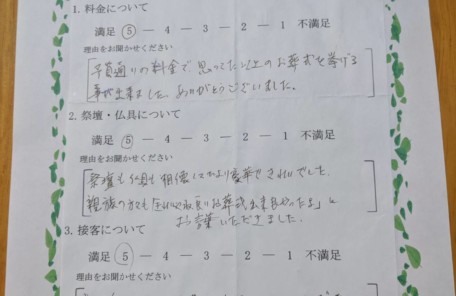 1. 料金について
満足 ⑤ ― 4 ― 3 ― 2 ― 1 不満足
理由をお聞かせください
予算通りの料金で思ってた以上のお葬式を挙げる
事が出来ました。ありがとうございました。
2. 祭壇・仏具について
満足 ⑤ ― 4 ― 3 ― 2 ― 1 不満足
理由をお聞かせください
祭壇も仏具も想像してたより豪華できれいでした。
親族の方々も「きれいで良いお葬式出来良かったね」と
お言葉いただきました。
3. 接客について
満足 ⑤ ― 4 ― 3 ― 2 ― 1 不満足
理由をお聞かせください